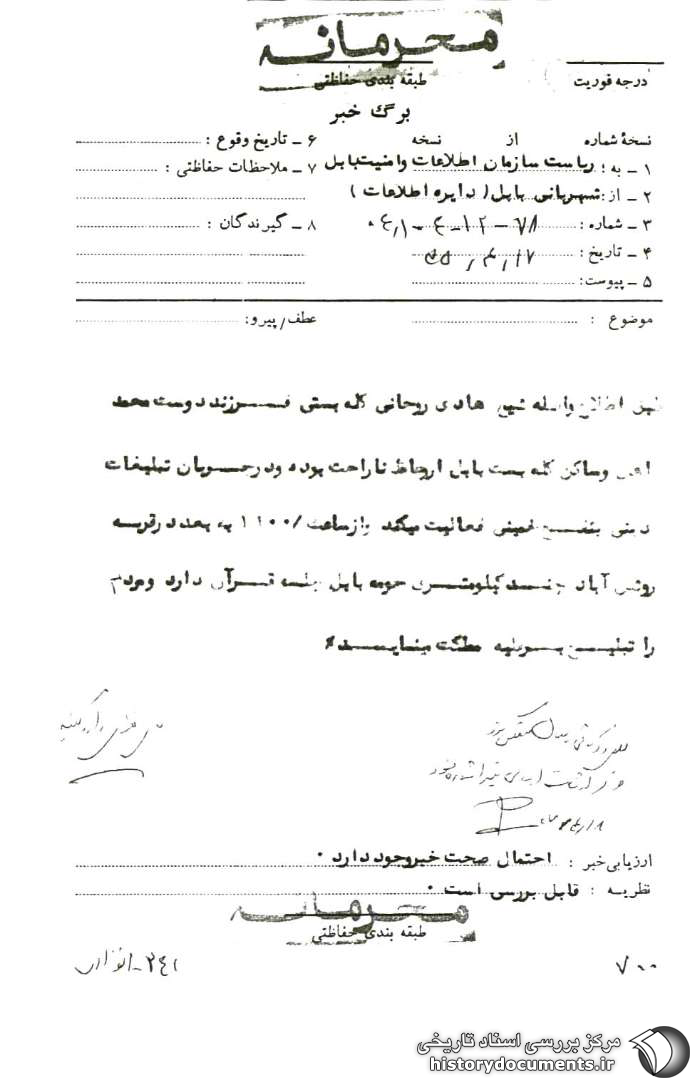 محرمانه
درجه فوریت
طبقه بندی حفاظتی
برگ خبر
نسخهٔ شماره از نسخه
۱ - به : ریاست سازمان اطلاعات وامنیت بابل
۲ - از : شهربانی بابل ( دایره اطلاعات )
۳ - شماره :
۴ - تاریخ :
۵ - پیوست :
۶ - تاریخ وقوع :
۷ - ملاحظات حفاظتی :
۸ - گیرندگان :
موضوع :
عطف/پیرو:
طبق اطلاع واصله شیخ هادی روحانی کله بستی فرزند دوست محمد
اهل وساکن کله بست بابل ناراحت بوده ودر جریان تبلیغات
دینی بنفع خمینی فعالیت میکند وازساعت /۱۱۰۰ به بعد درقریه
روشن آباد چند کیلومتری حومه بابل جلسه قرآن دارد ومردم
را تبلیغ برعلیه مملکت مینماید
ارزیابی خبر : احتمال صحت خبروجود دارد .
نظریه : قابل بررسی است .
محرمانه
طبقه بندی حفاظتی
۷۰۰
مرکز بررسی اسناد تاریخی
historydocuments.ir